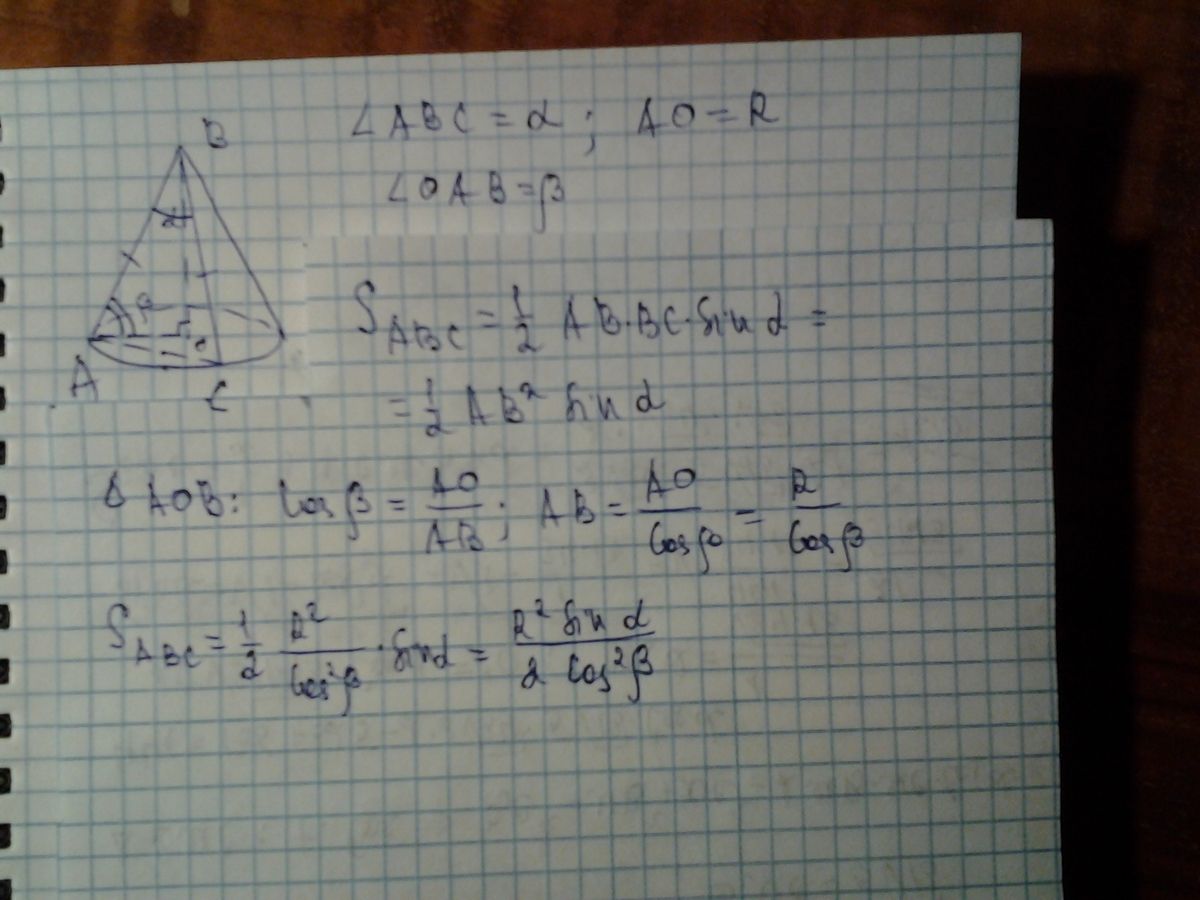 B
∠ABC = α; AO = R
∠OAB = β
α
A
o
C
S_ABC = 1/2 AB·BC·Sin α =
= 1/2 AB² Sin α
Δ AOB: Cos β = AO/AB; AB = AO/Cos β = R/Cos β
S_ABC = 1/2 R²/Cos²β · Sin α = R² Sin α/2 Cos²β